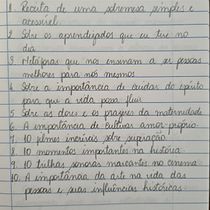 1. Receita de uma sobremesa simples e
acessível.
2. Sobre os aprendizados que eu tive no
dia
3. Metáforas que nos ensinam a ser pessoas
melhores para nós mesmos
4. Sobre a importância de cuidar do espírito
para que a vida possa fluir
5. Sobre as dores e os prazeres da maternidade
6. A importância de cultivar amor próprio
7. 10 filmes incríveis sobre superação
8. 10 momentos importantes na história
9. 10 trilhas sonoras marcantes no cinema
10. A importância da arte na vida das
pessoas e suas influências históricas.